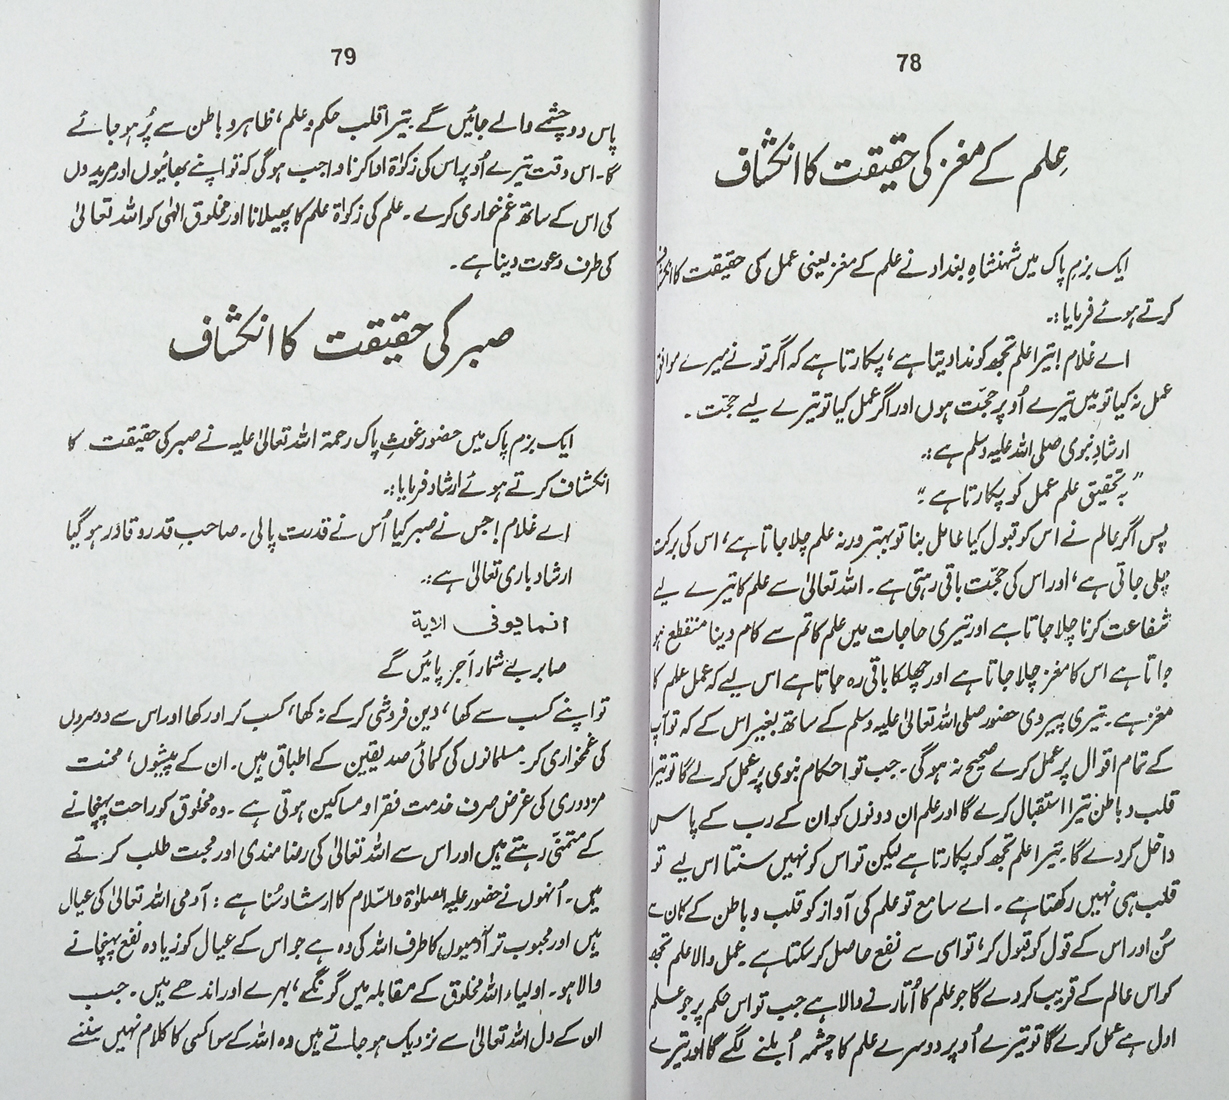 78
علم کے مغز کی حقیقت کا انکشاف
ایک بزمِ پاک میں شہنشاہِ بغداد نے علم کے مغز یعنی عمل کی حقیقت کا
کرتے ہوئے فرمایا:۔
اے غلام! تیرا علم تجھ کو ندا دیتا ہے، پکارتا ہے کہ اگر تو نے میرے موافق
عمل نہ کیا تو میں تیرے اُوپر حجّت ہوں اور اگر عمل کیا تو تیرے لیے حجّت ۔
ارشادِ نبوی صلی اللہ علیہ وسلم ہے:۔
”بہ تحقیق علم عمل کو پکارتا ہے ۔“
پس اگر عالم نے اس کو قبول کیا عامل بنا تو بہتر ورنہ علم چلا جاتا ہے، اس کی برکت
چلی جاتی ہے، اور اس کی حجّت باقی رہتی ہے۔ اللہ تعالیٰ سے علم کا تیرے لیے
شفاعت کرنا چلا جاتا ہے اور تیری حاجات میں علم کا تم سے کام دینا منقطع ہو
جاتا ہے اس کا مغز چلا جاتا ہے اور چھلکا باقی رہ جاتا ہے اس لیے کہ عمل علم کا
مغز ہے۔ تیری پیروی حضور صلی اللہ تعالیٰ علیہ وسلم کے ساتھ بغیر اس کے کہ تو آپ
کے تمام اقوال پر عمل کرے صحیح نہ ہوگی۔ جب تو احکام نبوی پر عمل کرلے گا تو تیرا
قلب و باطن تیرا استقبال کرے گا اور علم ان دونوں کو ان کے رب کے پاس
داخل کردے گا۔ تیرا علم تجھ کو پکارتا ہے لیکن تو اس کو نہیں سنتا اس لیے تو
قلب ہی نہیں رکھتا ہے۔ اے سامع تو علم کی آواز کو قلب و باطن کے کان سے
سُن اور اس کے قول کو قبول کر، تو اسی سے نفع حاصل کرسکتا ہے۔ عمل والا علم تجھ
کو اس عالم کے قریب کردے گا جو علم کا اُتارنے والا ہے جب تو اس حکم پر جو علم
اول ہے عمل کرے گا تو تیرے اُوپر دوسرے علم کا چشمہ اُبلنے لگے گا اور تیرے
79
پاس دو چشمے والے جائیں گے تیرا قلب حکم و علم، ظاہر و باطن سے پُر ہو جائے
گا۔ اس وقت تیرے اُوپر اس کی زکوٰۃ ادا کرنا واجب ہوگی کہ تو اپنے بھائیوں اور مریدوں
کی اس کے ساتھ غم خواری کرے۔ علم کی زکوٰۃ علم کا پھیلانا اور مخلوق الٰہی کو اللہ تعالیٰ
کی طرف دعوت دینا ہے۔
صبر کی حقیقت کا انکشاف
ایک بزم پاک میں حضور غوث پاک رحمۃ اللہ تعالیٰ علیہ نے صبر کی حقیقت کا
انکشاف کرتے ہوئے ارشاد فرمایا:۔
اے غلام! جس نے صبر کیا اُس نے قدرت پالی۔ صاحبِ قدر و قادر ہوگیا
ارشاد باری تعالیٰ ہے:۔
انما یوفی الایة
صابر بے شمار اَجر پائیں گے
تو اپنے کسب سے کھا، دین فروشی کرکے نہ کھا، کسب کر اور کھا اور اس سے دوسروں
کی غمخواری کر۔ مسلمانوں کی کمائی صدیقین کے اطباق ہیں۔ ان کے پیشوں، محنت
مزدوری کی غرض صرف خدمت فقرا و مساکین ہوتی ہے۔ وہ مخلوق کو راحت پہنچانے
کے متمنّی رہتے ہیں اور اس سے اللہ تعالیٰ کی رضا مندی اور محبت طلب کرتے
ہیں۔ اُنہوں نے حضور علیہ الصلوٰۃ والسّلام کا ارشاد سُنا ہے: آدمی اللہ تعالیٰ کی عیال
ہیں اور محبوب تر آدمیوں کا طرف اللہ کی وہ ہے جو اس کے عیال کو زیادہ نفع پہنچانے
والا ہو۔ اولیاء اللہ مخلوق کے مقابلہ میں گونگے، بہرے اور اندھے ہیں۔ جب
ان کے دل اللہ تعالیٰ سے نزدیک ہو جاتے ہیں وہ اللہ کے سوا کسی کا کلام نہیں سنتے